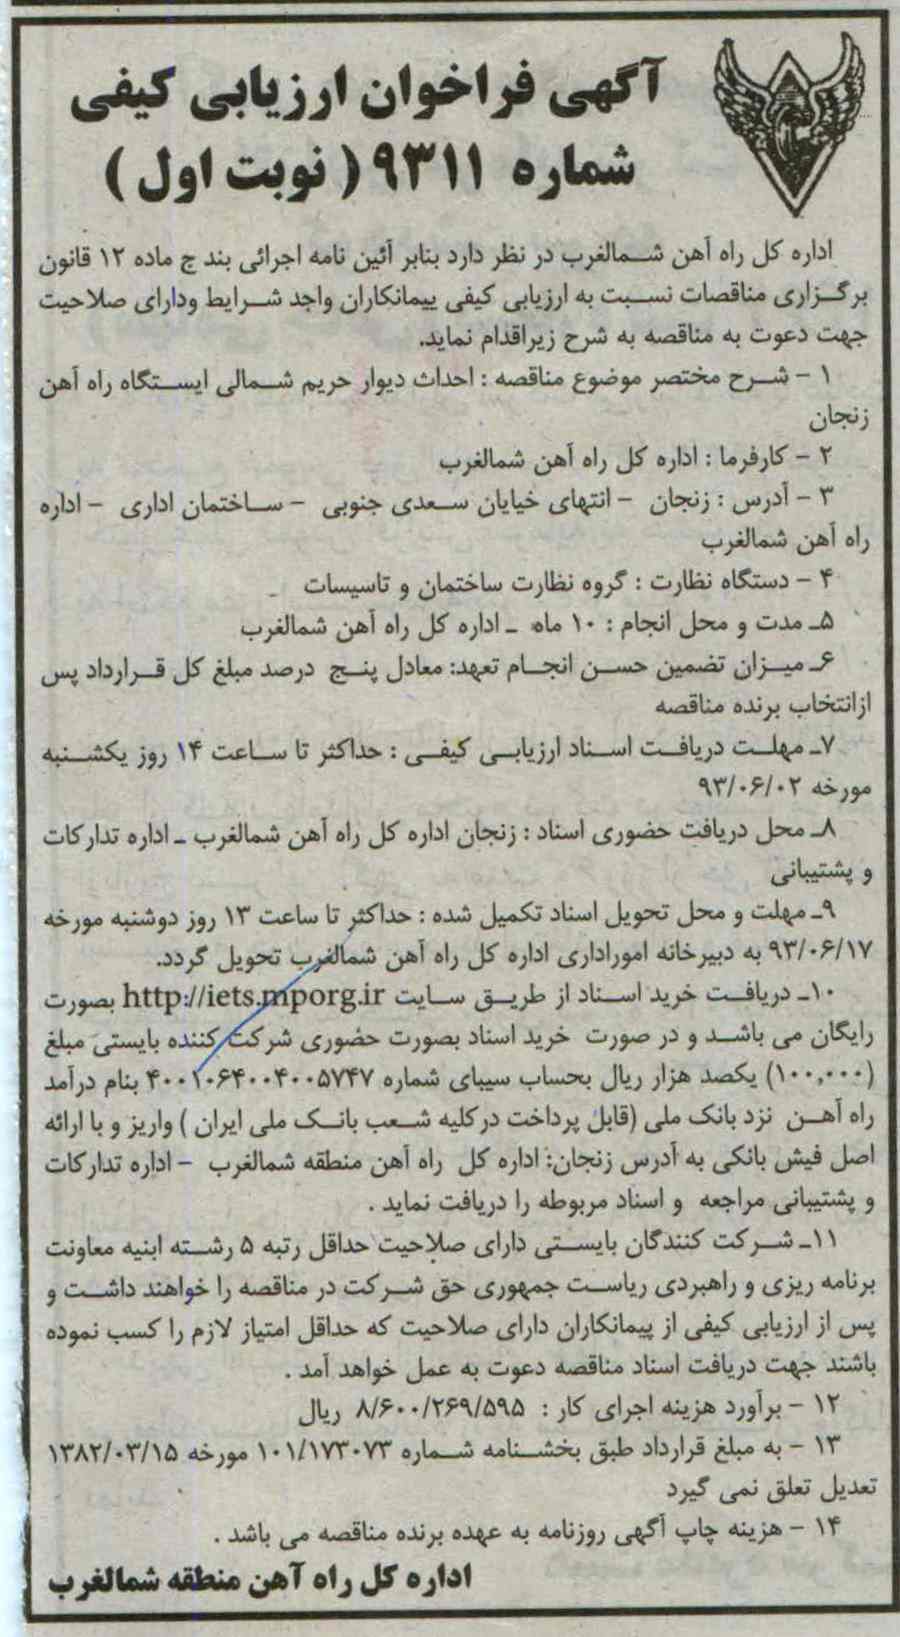 آگهی فراخوان ارزیابی کیفی
شماره ۹۳۱۱ ( نوبت اول )
اداره کل راه آهن شمالغرب در نظر دارد بنابر آئین نامه اجرائی بند ج ماده ۱۲ قانون
برگزاری مناقصات نسبت به ارزیابی کیفی پیمانکاران واجد شرایط ودارای صلاحیت
جهت دعوت به مناقصه به شرح زیراقدام نماید.
۱ - شرح مختصر موضوع مناقصه : احداث دیوار حریم شمالی ایستگاه راه آهن
زنجان
۲ - کارفرما : اداره کل راه آهن شمالغرب
۳ - آدرس : زنجان - انتهای خیابان سعدی جنوبی - ساختمان اداری - اداره
راه آهن شمالغرب
۴ - دستگاه نظارت : گروه نظارت ساختمان و تاسیسات
۵ـ مدت و محل انجام : ۱۰ ماه ـ اداره کل راه آهن شمالغرب
۶ـ میزان تضمین حسن انجام تعهد: معادل پنج درصد مبلغ کل قرارداد پس
ازانتخاب برنده مناقصه
۷ـ مهلت دریافت اسناد ارزیابی کیفی : حداکثر تا ساعت ۱۴ روز یکشنبه
مورخه ۹۳/۰۶/۰۲
۸ـ محل دریافت حضوری اسناد : زنجان اداره کل راه آهن شمالغرب ـ اداره تدارکات
و پشتیبانی
۹ـ مهلت و محل تحویل اسناد تکمیل شده : حداکثر تا ساعت ۱۳ روز دوشنبه مورخه
۹۳/۰۶/۱۷ به دبیرخانه اموراداری اداره کل راه آهن شمالغرب تحویل گردد.
۱۰ـ دریافت خرید اسناد از طریق سایت http://iets.mporg.ir بصورت
رایگان می باشد و در صورت خرید اسناد بصورت حضوری شرکت کننده بایستی مبلغ
(۱۰۰,۰۰۰) یکصد هزار ریال بحساب سیبای شماره ۴۰۰۱۰۶۴۰۰۴۰۰۵۷۴۷ بنام درآمد
راه آهن نزد بانک ملی (قابل پرداخت درکلیه شعب بانک ملی ایران ) واریز و با ارائه
اصل فیش بانکی به آدرس زنجان: اداره کل راه آهن منطقه شمالغرب - اداره تدارکات
و پشتیبانی مراجعه و اسناد مربوطه را دریافت نماید .
۱۱ـ شرکت کنندگان بایستی دارای صلاحیت حداقل رتبه ۵ رشته ابنیه معاونت
برنامه ریزی و راهبردی ریاست جمهوری حق شرکت در مناقصه را خواهند داشت و
پس از ارزیابی کیفی از پیمانکاران دارای صلاحیت که حداقل امتیاز لازم را کسب نموده
باشند جهت دریافت اسناد مناقصه دعوت به عمل خواهد آمد .
۱۲ - برآورد هزینه اجرای کار : ۸/۶۰۰/۲۶۹/۵۹۵ ریال
۱۳ - به مبلغ قرارداد طبق بخشنامه شماره ۱۰۱/۱۷۳۰۷۳ مورخه ۱۳۸۲/۰۳/۱۵
تعدیل تعلق نمی گیرد
۱۴ - هزینه چاپ آگهی روزنامه به عهده برنده مناقصه می باشد .
اداره کل راه آهن منطقه شمالغرب